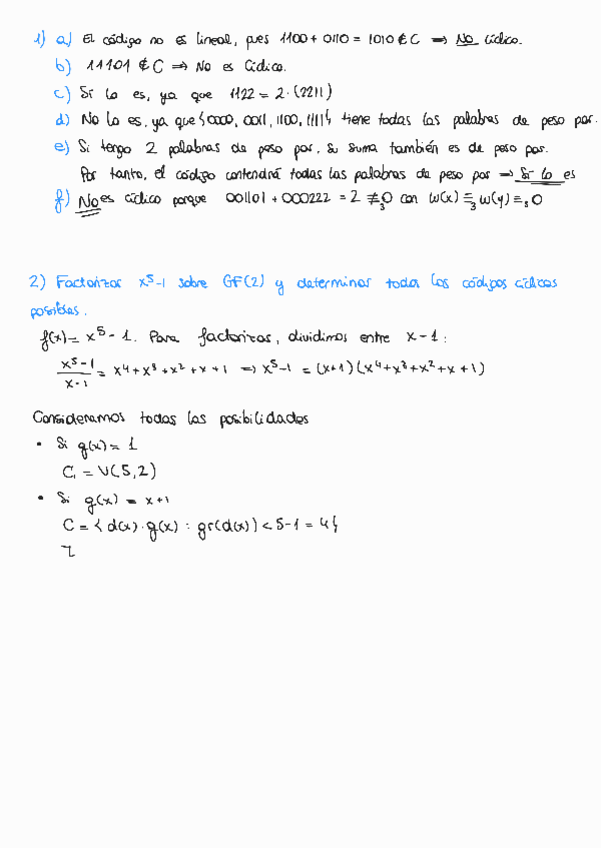 1) a) El código no es lineal, pues 1100 + 0110 = 1010 ∉ C ⇒ No cíclico.
b) 11101 ∉ C ⇒ No es Cíclico.
c) Sí lo es, ya que 1122 = 2·(2211)
d) No lo es, ya que {0000, 0011, 1100, 1111} tiene todas las palabras de peso par.
e) Si tengo 2 palabras de peso par, su suma también es de peso par.
Por tanto, el código contendrá todas las palabras de peso par ⇒ Sí lo es
f) No es cíclico porque 001101 + 000222 = 2 ≢₃ 0 con w(x) ≡₃ w(y) ≡₃ 0
2) Factorizar x⁵-1 sobre GF(2) y determinar todos los códigos cíclicos
posibles.
f(x) = x⁵ - 1. Para factorizar, dividimos entre x-1:
x⁵-1 / x-1 = x⁴+x³+x²+x+1 ⇒ x⁵-1 = (x+1)(x⁴+x³+x²+x+1)
Consideramos todas las posibilidades
• Si g(x) = 1
C₁ = V(5,2)
• Si g(x) = x+1
C = { d(x)·g(x) : gr(d(x)) < 5-1 = 4 }